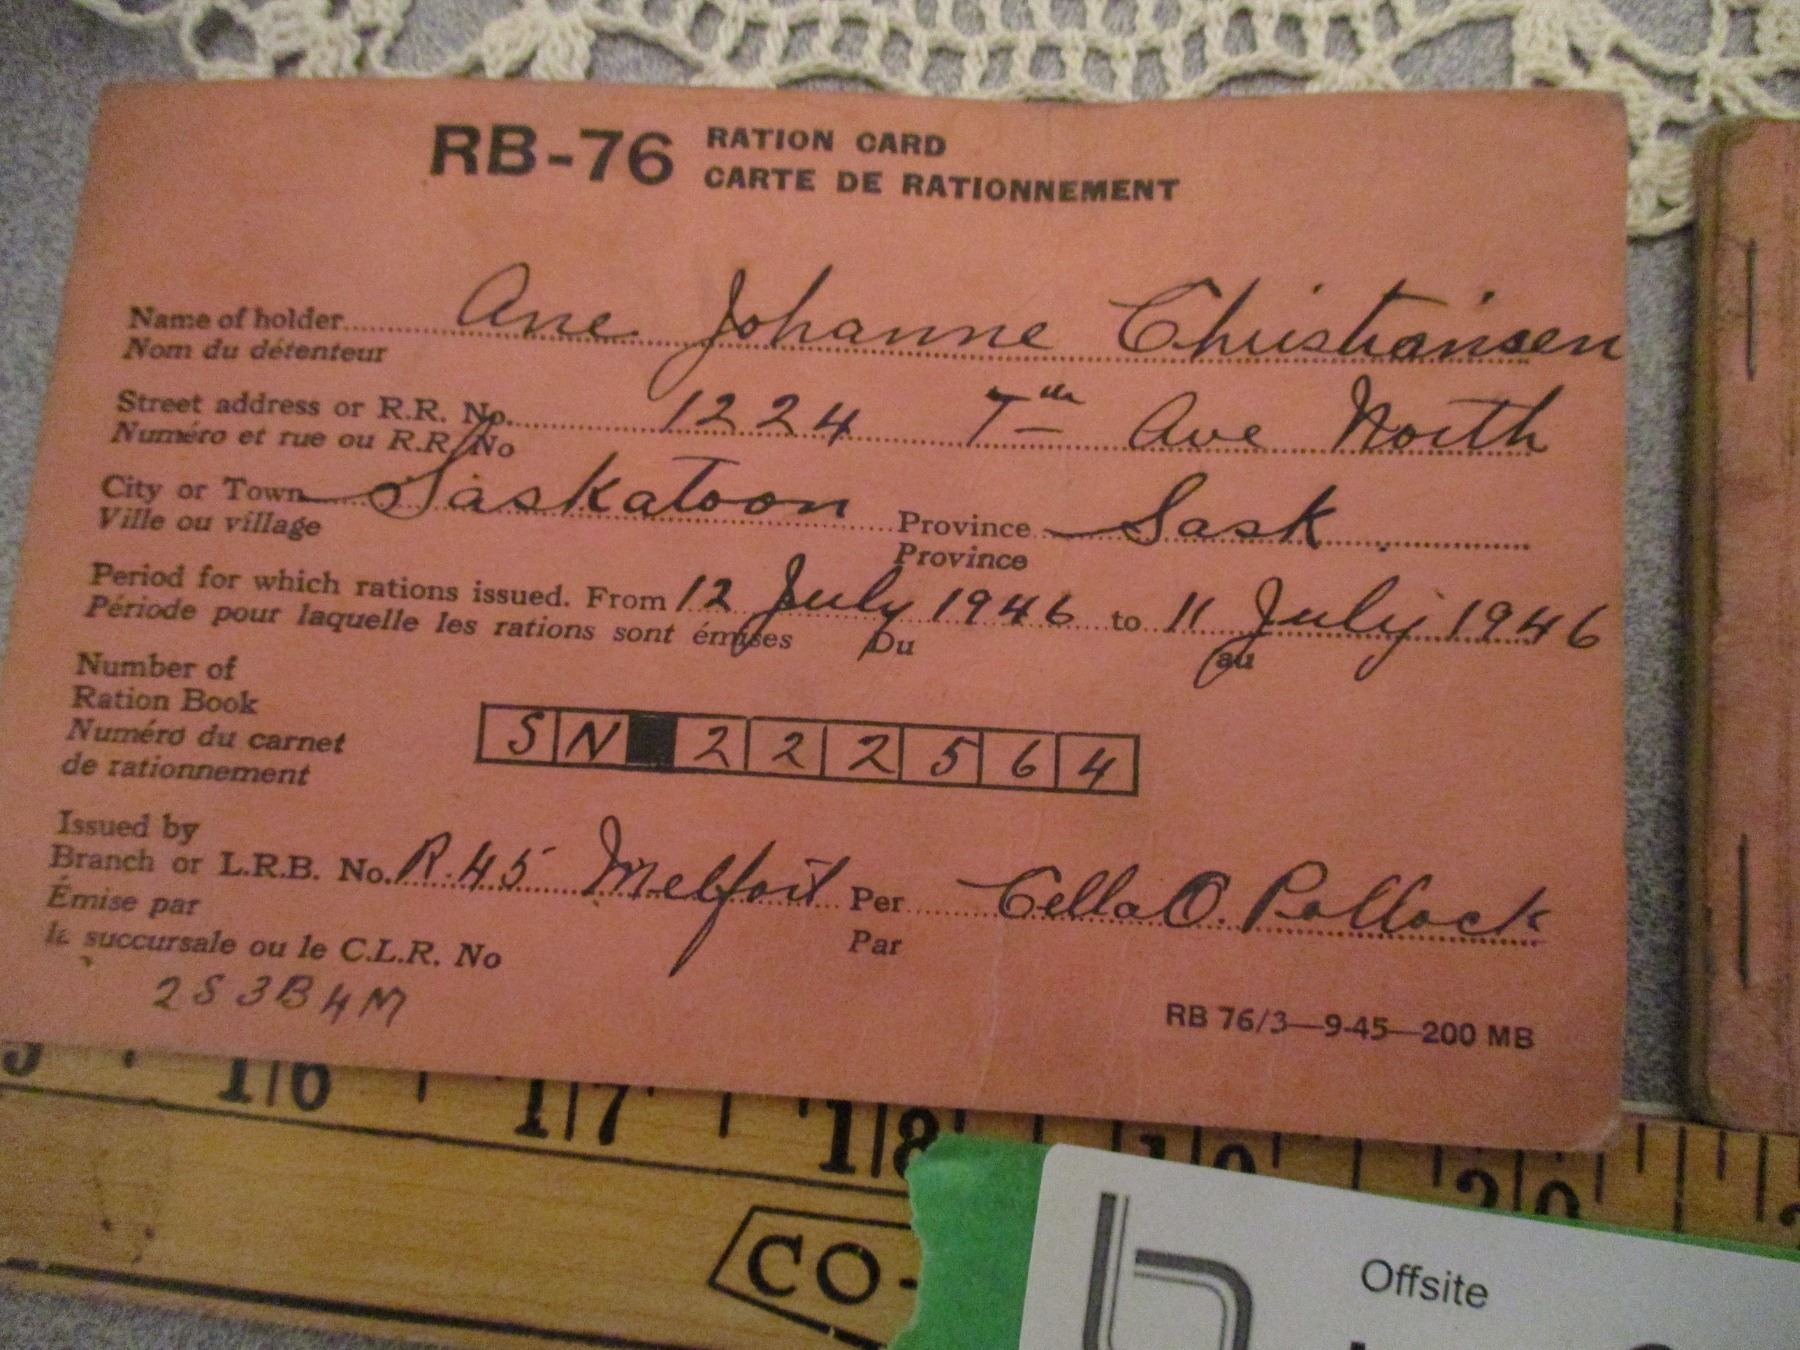 RB-76 RATION CARD
CARTE DE RATIONNEMENT
Name of holder Ane Johanne Christiansen
Nom du détenteur
Street address or R.R. No. 1224 7th Ave North
Numéro et rue ou R.R. No
City or Town Saskatoon Province Sask.
Ville ou village Province
Period for which rations issued. From 12 July 1946 to 11 July 1946
Période pour laquelle les rations sont émises Du au
Number of
Ration Book
Numéro du carnet
de rationnement
SN 222564
Issued by
Branch or L.R.B. No. R.45 Melfort Per Cella O. Pollock
Émise par
la succursale ou le C.L.R. No Par
2S 3B 4M
RB 76/3—9-45—200 MB
16 17 18 19 20
CO-
Offsite